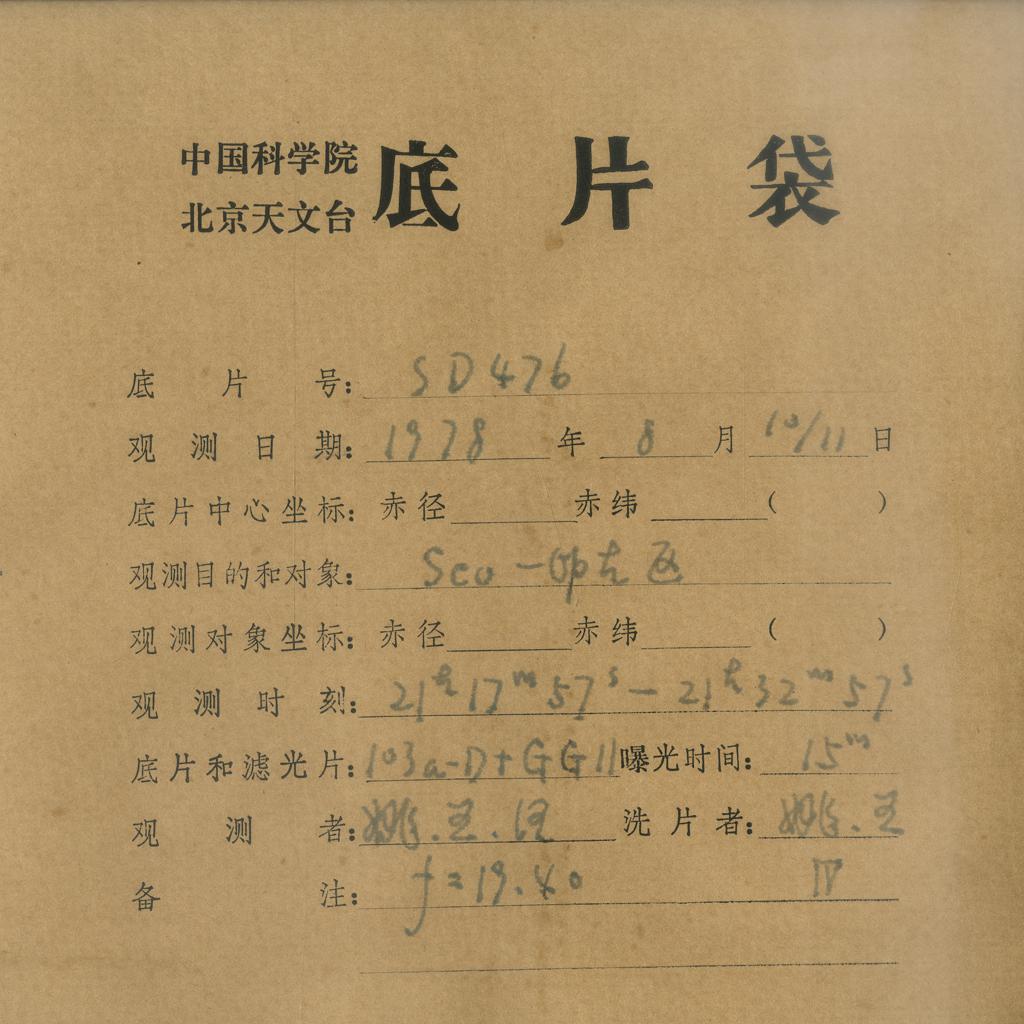 中国科学院
北京天文台
底片袋
底片号: SD476
观测日期: 1978年8月10/11日
底片中心坐标: 赤径 赤纬 ( )
观测目的和对象: Sco-Oph 区
观测对象坐标: 赤径 赤纬 ( )
观测时刻: 21h17m57s-21h32m57s
底片和滤光片: 103a-D+GG11 曝光时间: 15m
观测者: 姚.王.汪 洗片者: 姚.王
备注: f=19.40 IV